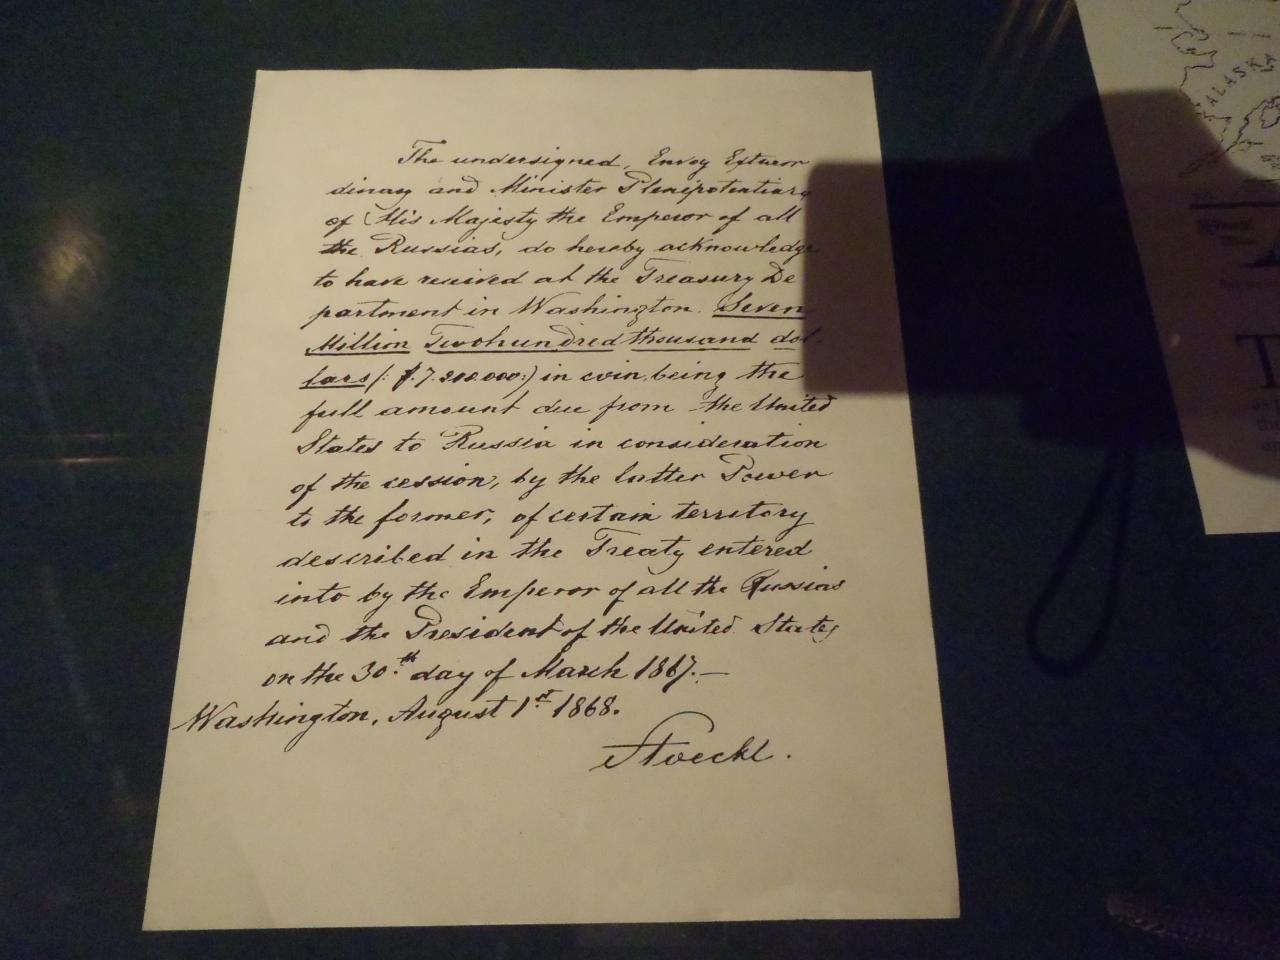 The undersigned, Envoy Extraor
dinary and Minister Plenipotentiary
of His Majesty the Emperor of all
the Russias, do hereby acknowledge
to have received at the Treasury De
partment in Washington Seven
Million Two hundred thousand dol-
lars (: $ 7.200.000:) in coin, being the
full amount due from the United
States to Russia in consideration
of the cession, by the latter Power
to the former, of certain territory
described in the Treaty entered
into by the Emperor of all the Russias
and the President of the United States
on the 30.th day of March 1867.—
Washington, August 1st 1868.
Stoeckl.
ALASKA